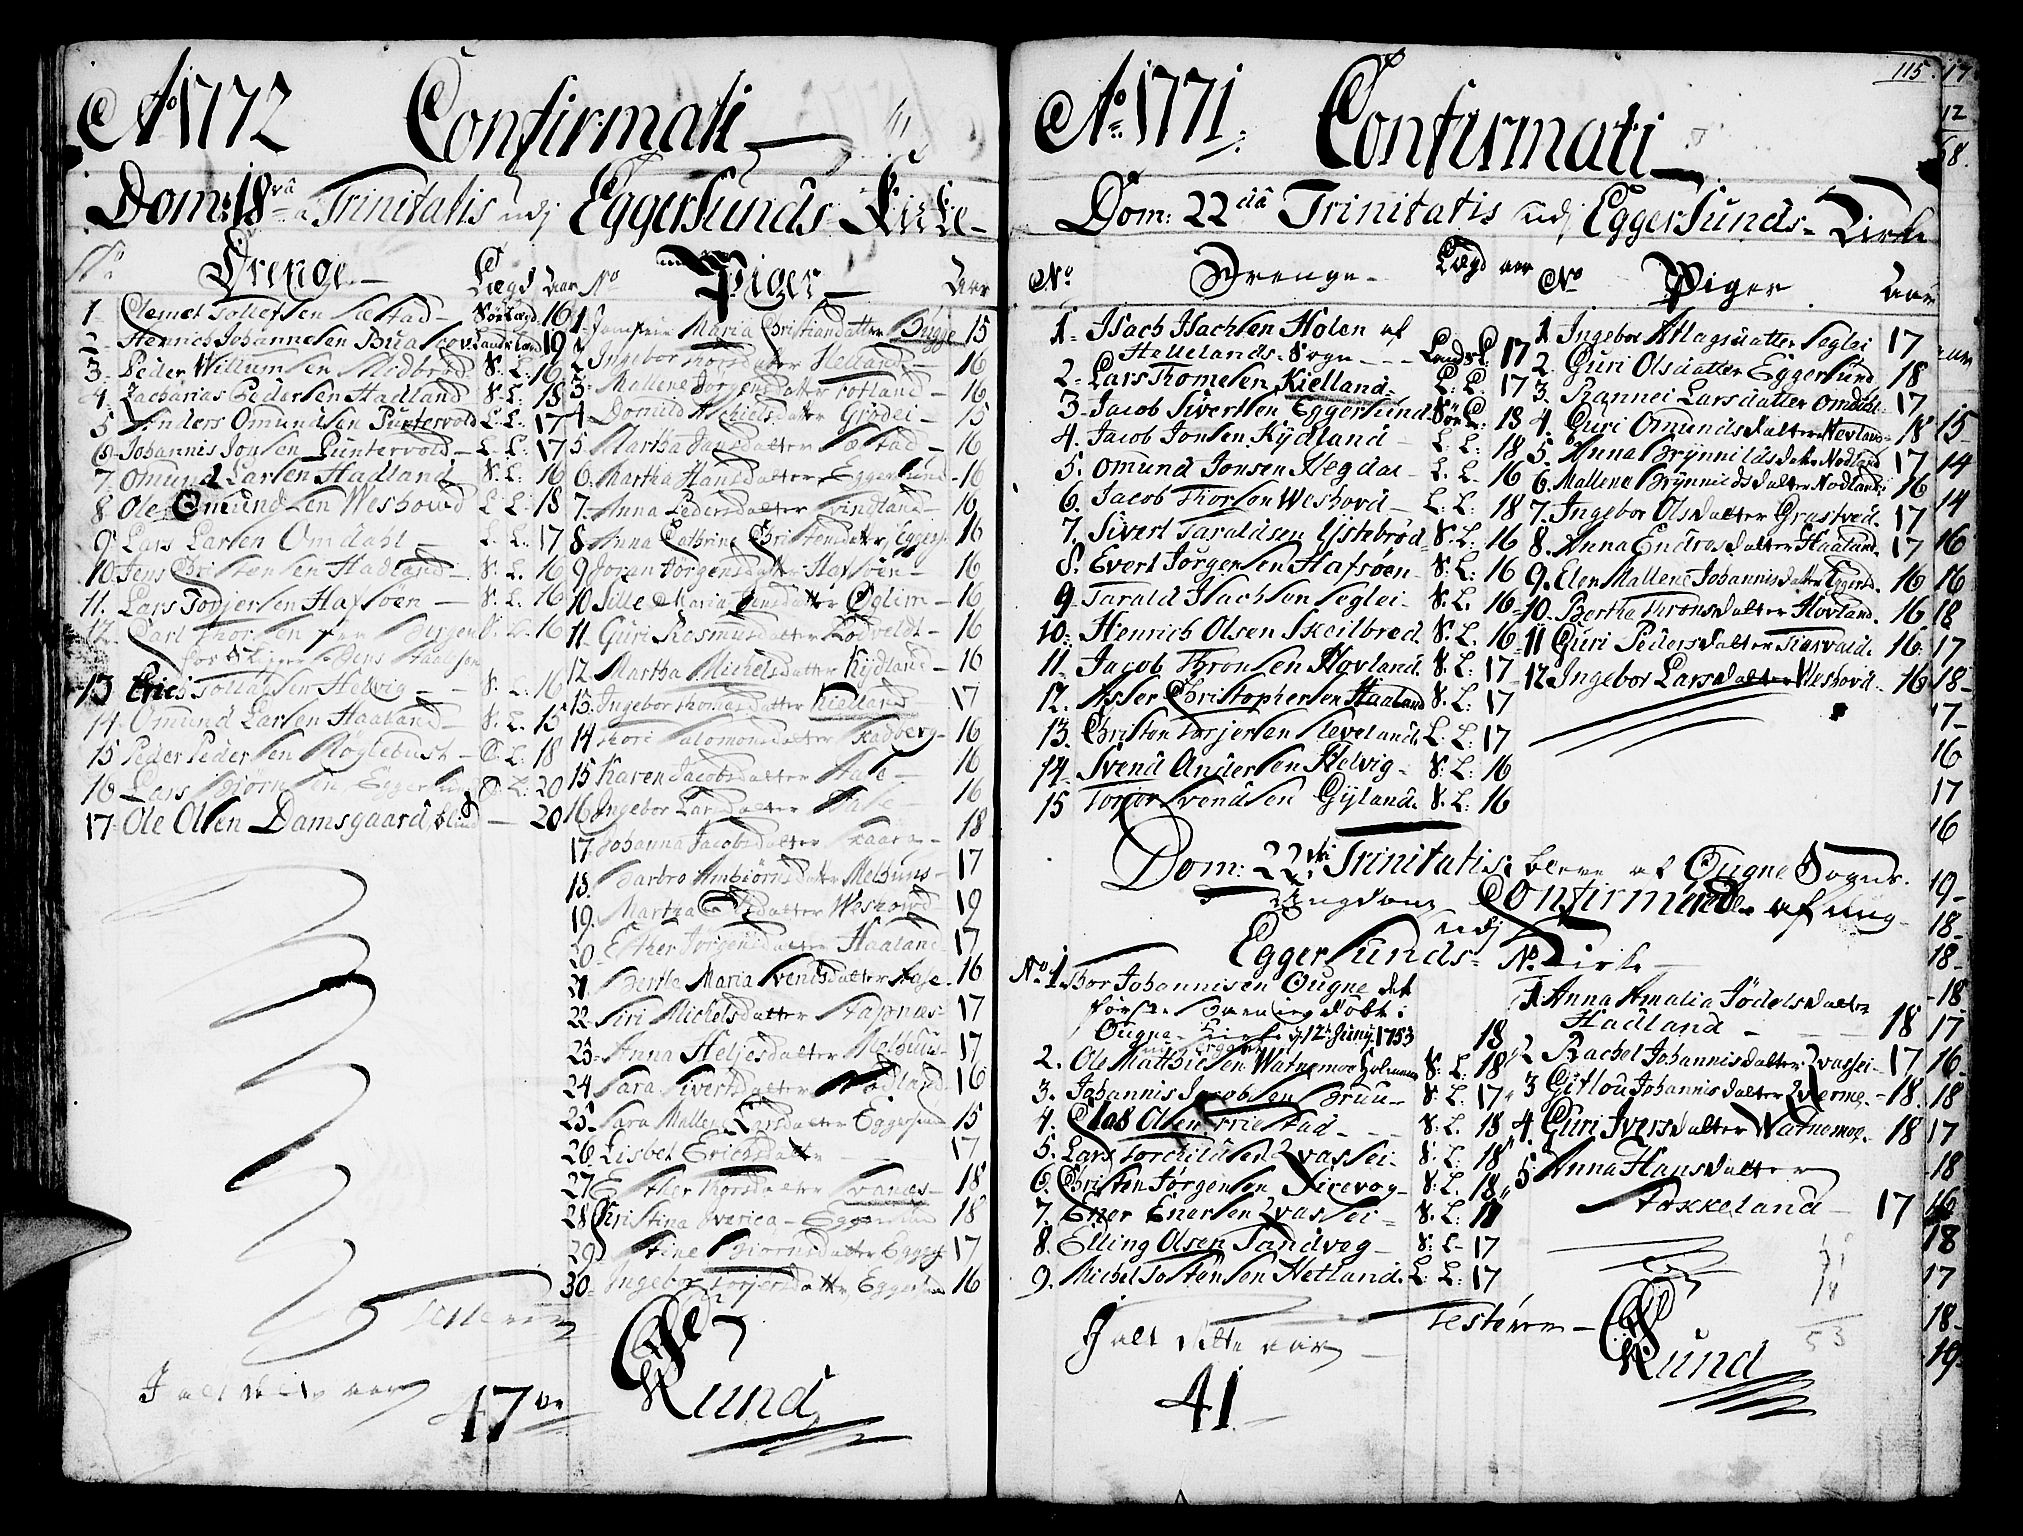 Ao 1772 Confirmati
Dom: 18va Trinitatis udj Eggersunds Kirke
No Drenge Lægd Aar
1 Clemet Tollefsen Sæstad 16
2 Henrich Johannesen 19
3 Peder Willumsen Midbrød S: L: 16
4 Zacharias Pedersen Hadland S: L: 18
5 Anders Omundsen Puntervold L: L: 17
6 Johannis Jonsen Puntervold L: L: 17
7 Omund Larsen Hadland S: L: 16
8 Ole Omundsen Weshovd L: L: 18
9 Lars Larsen Omdahl L: L: 17
10 Jens Christensen Hadland S: L: 16
11. Lars Torjersen Hafsøen S: L: 16
12. Carl Thorsen Bergen S: L: 16
13 Erich Tollagsen Helvig S: L: 16
14. Omund Larsen Haaland S: L: 15
15 Peder Pedersen Røglebust O: L: 18
16 Lars Biørnsen Eggersund O: L: 20
17. Ole Olsen Damsgaard, blind 20
No Piger Aar
1. Jomfrue Maria Christiandatter Bugge 15
2 Ingebor Thorsdatter Helland 16
3. Mallene Jørgensdatter Totland 16
4 Domild Michelsdatter Grødei 15
5 Martha Jansdatter Sæstad 16
6. Martha Hansdatter Eggersund 16
7. Anna Pedersdatter Svindland 16
8 Anna Cathrine Christensdatter, Eggers: 16
9 Joran Jørgensdatter Hafsøen 16
10 Sille Maria Jensdatter Øglim 16
11. Guri Rasmusdatter Lodveldt 16
12 Martha Michelsdatter Kydland 16
13. Ingebor Thomasdatter Kielland 17
14 Thori Salomonsdatter Skadberg 16
15 Karen Jacobsdatter Hase 16
16 Ingebor Larsdatter Hase 16
17. Johanna Jacobsdatter Skaara 18
18. Barbro Ambiørnsdatter Melhuus 17
19. Martha Olsdatter Weshovd 19
20 Esther Jørgensdatter Haaland 17
21 Berte Maria Svendsdatter Hase 16
22 Siri Michelsdatter Stapnæs 17
23 Anna Heljesdatter Melhuus 17
24 Sara Sivertsdatter Nodland 16
25 Sara Mallene Larsdatter Eggersund 15
26 Lisbet Erichsdatter 17
27 Esther Thorsdatter Svanæs 18
28 Christina Iverica Eggersund 18
29 Stine Biørnsdatter Eggers: 17
30. Ingebor Torjersdatter, Eggersund 16
Testerer
Lund
I alt dette aar
47 ve
115
Ao 1771. Confirmati
Dom: 22da Trinitatis udj Eggersunds Kirke
No Drenge Lægd aar
1. Isach Isachsen Holen af
Hellelands Sogn Lands L: 17
2. Lars Thomesen Kielland L: L: 17
3. Jacob Sivertsen Eggersund Søe L: 18
4. Jacob Jonsen Kydland L: L: 18
5. Omund Jonsen Hegdal L: L: 16
6. Jacob Thorsen Weshovd L: L: 18
7. Sivert Taraldsen Ystebrød S: L: 16
8. Evert Jørgensen Hafsøen S: L: 16
9 Tarald Isachsen Seglei S: L: 16
10. Henrich Olsen Skeilbred S: L: 16
11. Jacob Thronsen Hovland S: L: 17
12. Asser Christophersen Haaland S: L: 17
13. Christen Torjersen Sleveland L: L: 17
14. Svend Andersen Helvig S: L: 16
15 Torjer Svendsen Gyland S: L: 16
No Piger Aar
1 Ingebor Aslagsdatter Seglei 17
2. Guri Olsdatter Eggersund 18
3. Rannei Larsdatter Omdahl 17
4. Guri Omundsdatter Hevland 18
5 Anna Brynnildsdatter Nodland 17
6. Mallena Brynnildsdatter Nodland 16
7. Ingebor Olsdatter Grastved 17
8. Anna Endresdatter Haaland 17
9. Elen Mallene Johannisdatter Eggersd. 16
10. Bertha Thronsdatter Hovland 16
11 Guri Pedersdatter Tiosvald. 16
12. Ingebor Larsdatter Weshovd 16
Dom: 22da Trinitatis bleve af Ougne Sogns
Ungdom Confirmerede af mig
udj
Eggersunds Kirke
No 1. Thor Johannisen Ougne det
første Barn ieg døbt i
Ougne Kirke d 12te Junij 1753 18
2. Ole Mathisen Watnemoe Holmen S: L: 18
3. Johannis Jacobsen Bruu S: L. 17
4. Clas Olsen Friestad S: L. 18
5. Lars Torchildsen Qvassei S: L: 18
6. Christen Jørgensen Sirevog S: L. 18
7. Ener Enersen Qvassei S: L: 17
8. Elling Olsen Sandvog S: L 17
9. Michel Tostensen Hetland L: L: 17
No
1. Anna Amalia Jødelsdatter
Hadland 18
2 Rachel Johannisdatter Qvassei 17
3 Gitlou Johannisdatter Qverme 18.
4. Guri Iversdatter Watnemoe 18
5 Anna Hansdatter
Stokkeland 17
Testerer
Lund
I alt dette aar
41.
53
17
12
58.
15
14
14
16
16
18
17
18
17
16
17
16
19
18
18
18
17
16
18
17
18
16
18
17
18
19